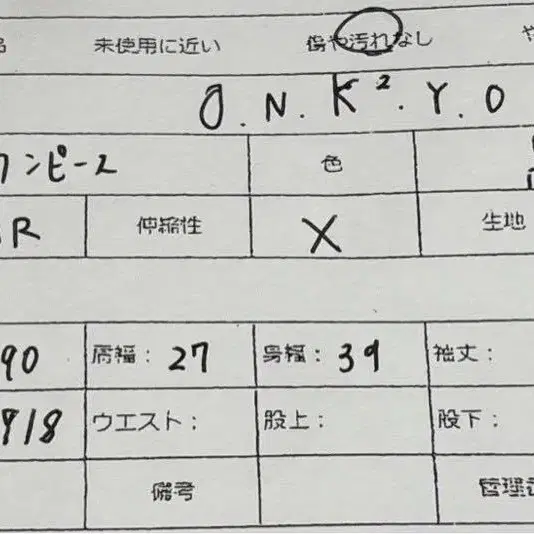 未使用に近い 傷や汚れなし や
O.N.K².Y.O
ワンピース 色
R 伸縮性 X 生地
90 肩幅: 27 身幅: 39 袖丈:
918 ウエスト: 股上: 股下:
備考 管理